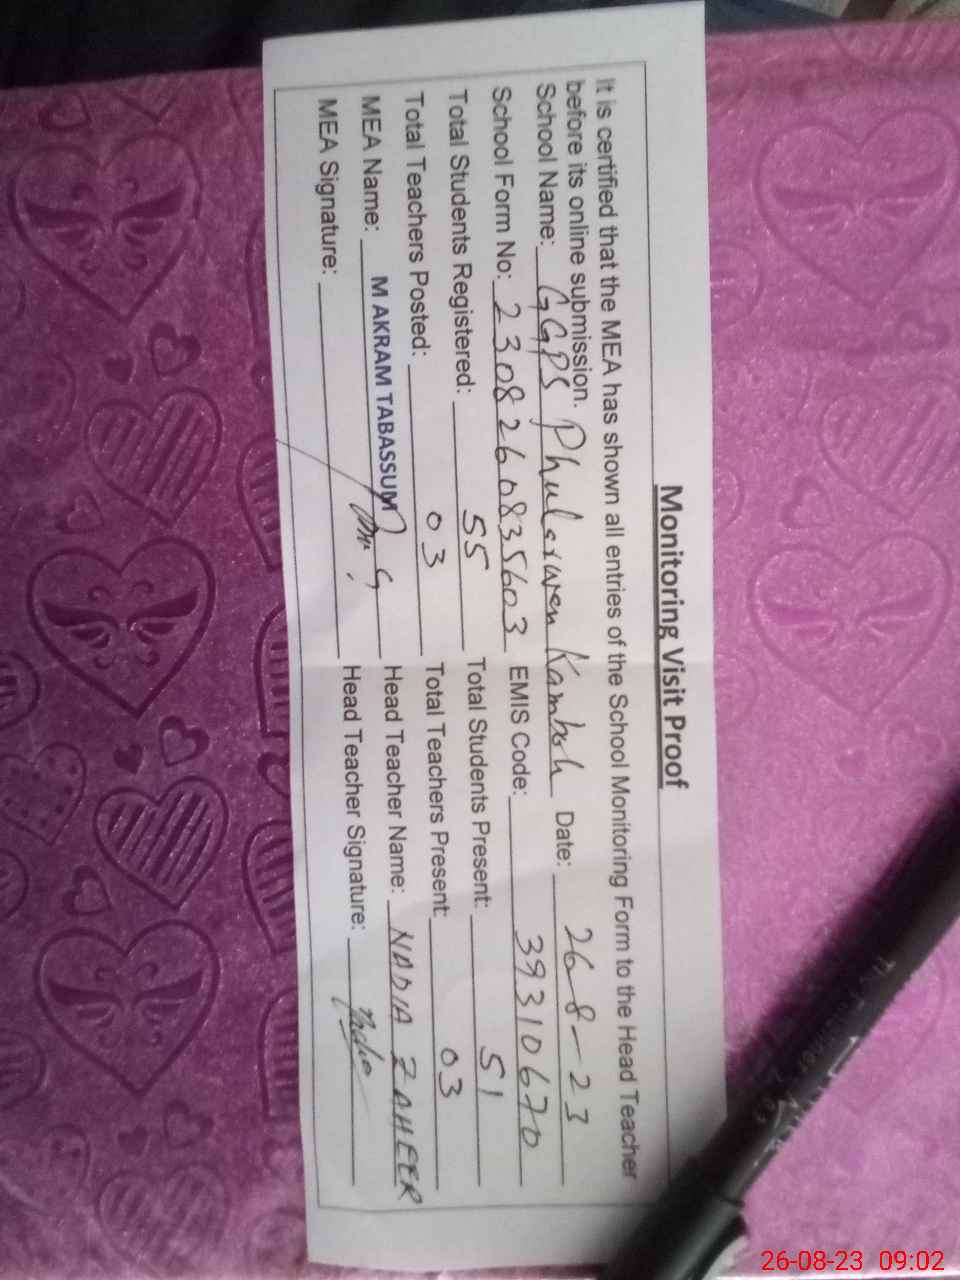 Monitoring Visit Proof
It is certified that the MEA has shown all entries of the School Monitoring Form to the Head Teacher
before its online submission.
School Name: GGPS Phularwan Kamboh Date: 26-8-23
School Form No: 2308260835603 EMIS Code: 39310670
Total Students Registered: 55 Total Students Present: 51
Total Teachers Posted: 03 Total Teachers Present: 03
MEA Name: M AKRAM TABASSUM Head Teacher Name: NADIA ZAHEER
MEA Signature: Head Teacher Signature: Nadia
26-08-23 09:02